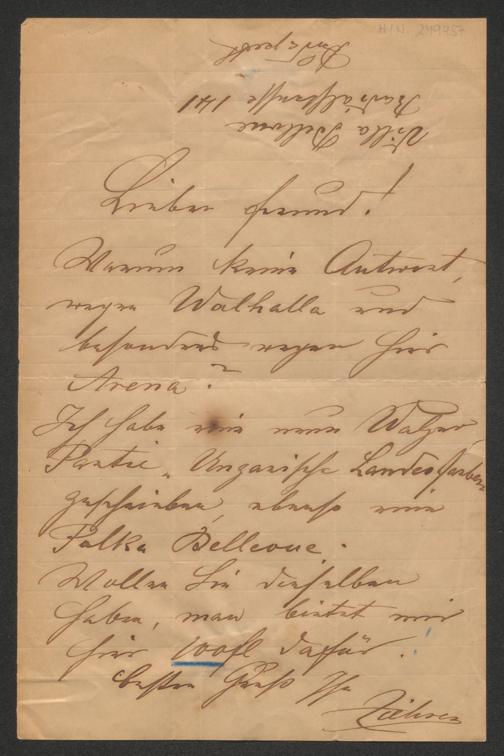 H.I.N. 249457
Budapest
Radialstrasse 141
Villa Bellevue
Lieber Freund!
Warum keine Antwort,
wegen Walhalla und
besonders wegen hier
Arena?
Ich habe eine neue Walzer
Partie „Ungarische Landesfarben
geschrieben, ebenso eine
Polka Bellevue.
Wollen Sie dieselben
haben, man bietet mir
hier 100fl dafür.
besten Gruß Ihr